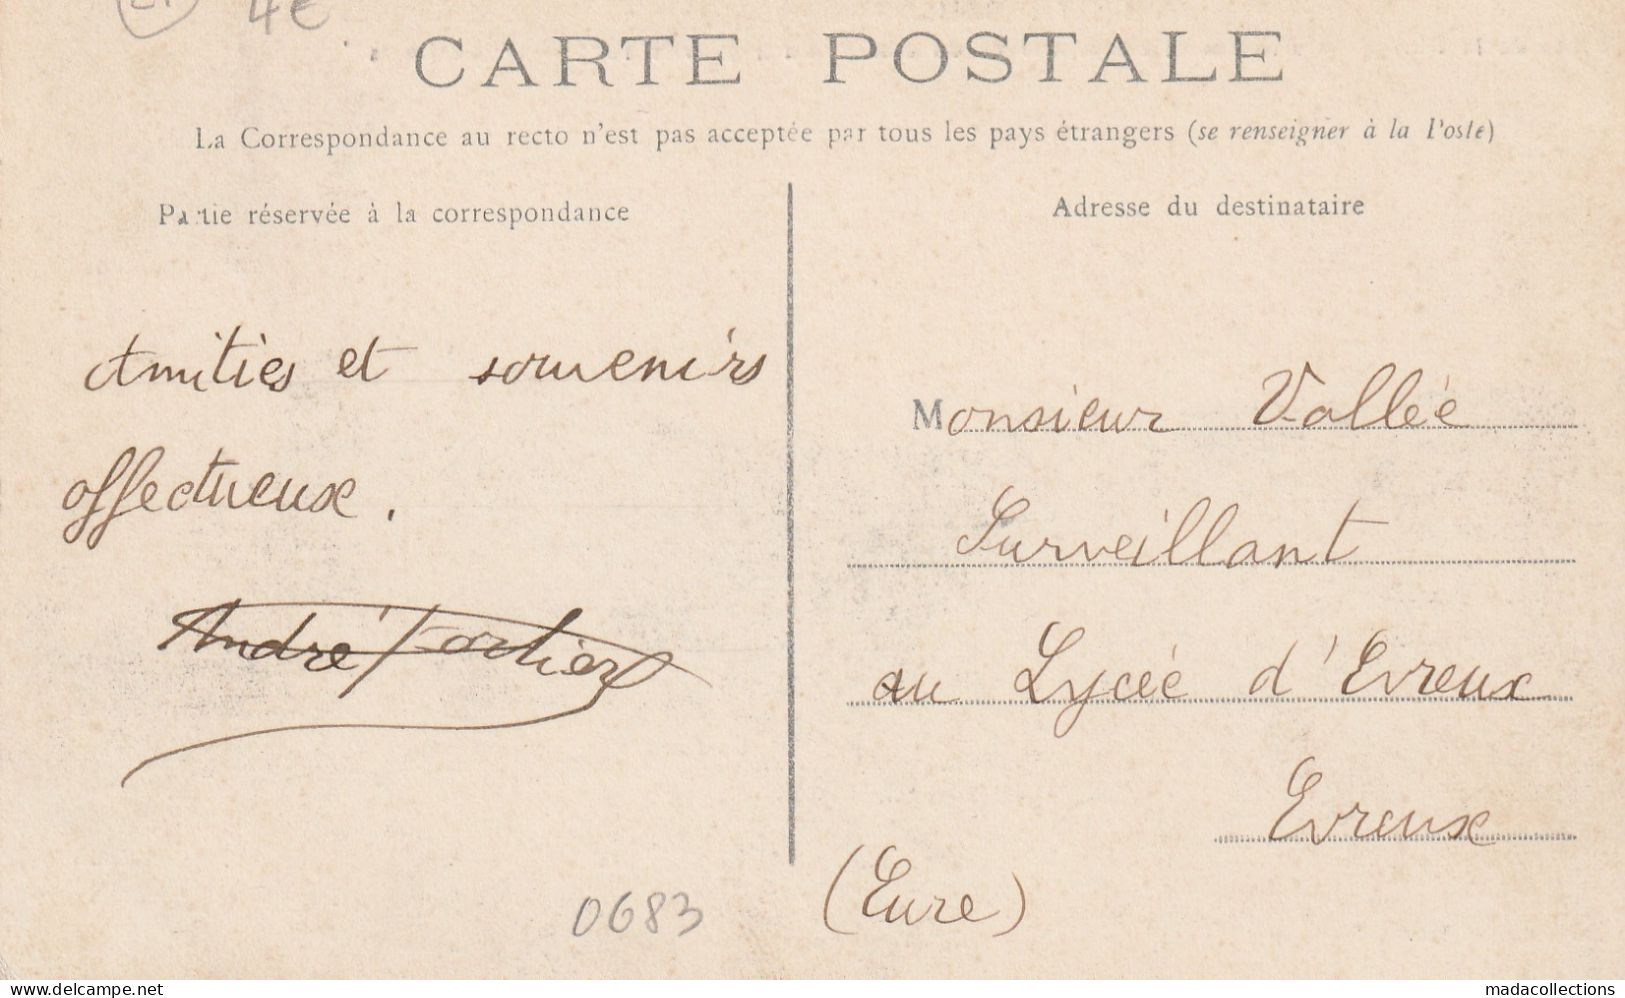 4€
CARTE POSTALE
La Correspondance au recto n'est pas acceptée par tous les pays étrangers (se renseigner à la Poste)
Partie réservée à la correspondance
Amitiés et souvenirs
affectueux.
André Fortier
0683
Adresse du destinataire
Monsieur Vallée
Surveillant
au Lycée d'Evreux
Evreux
(Eure)
www.delcampe.net
madacollections